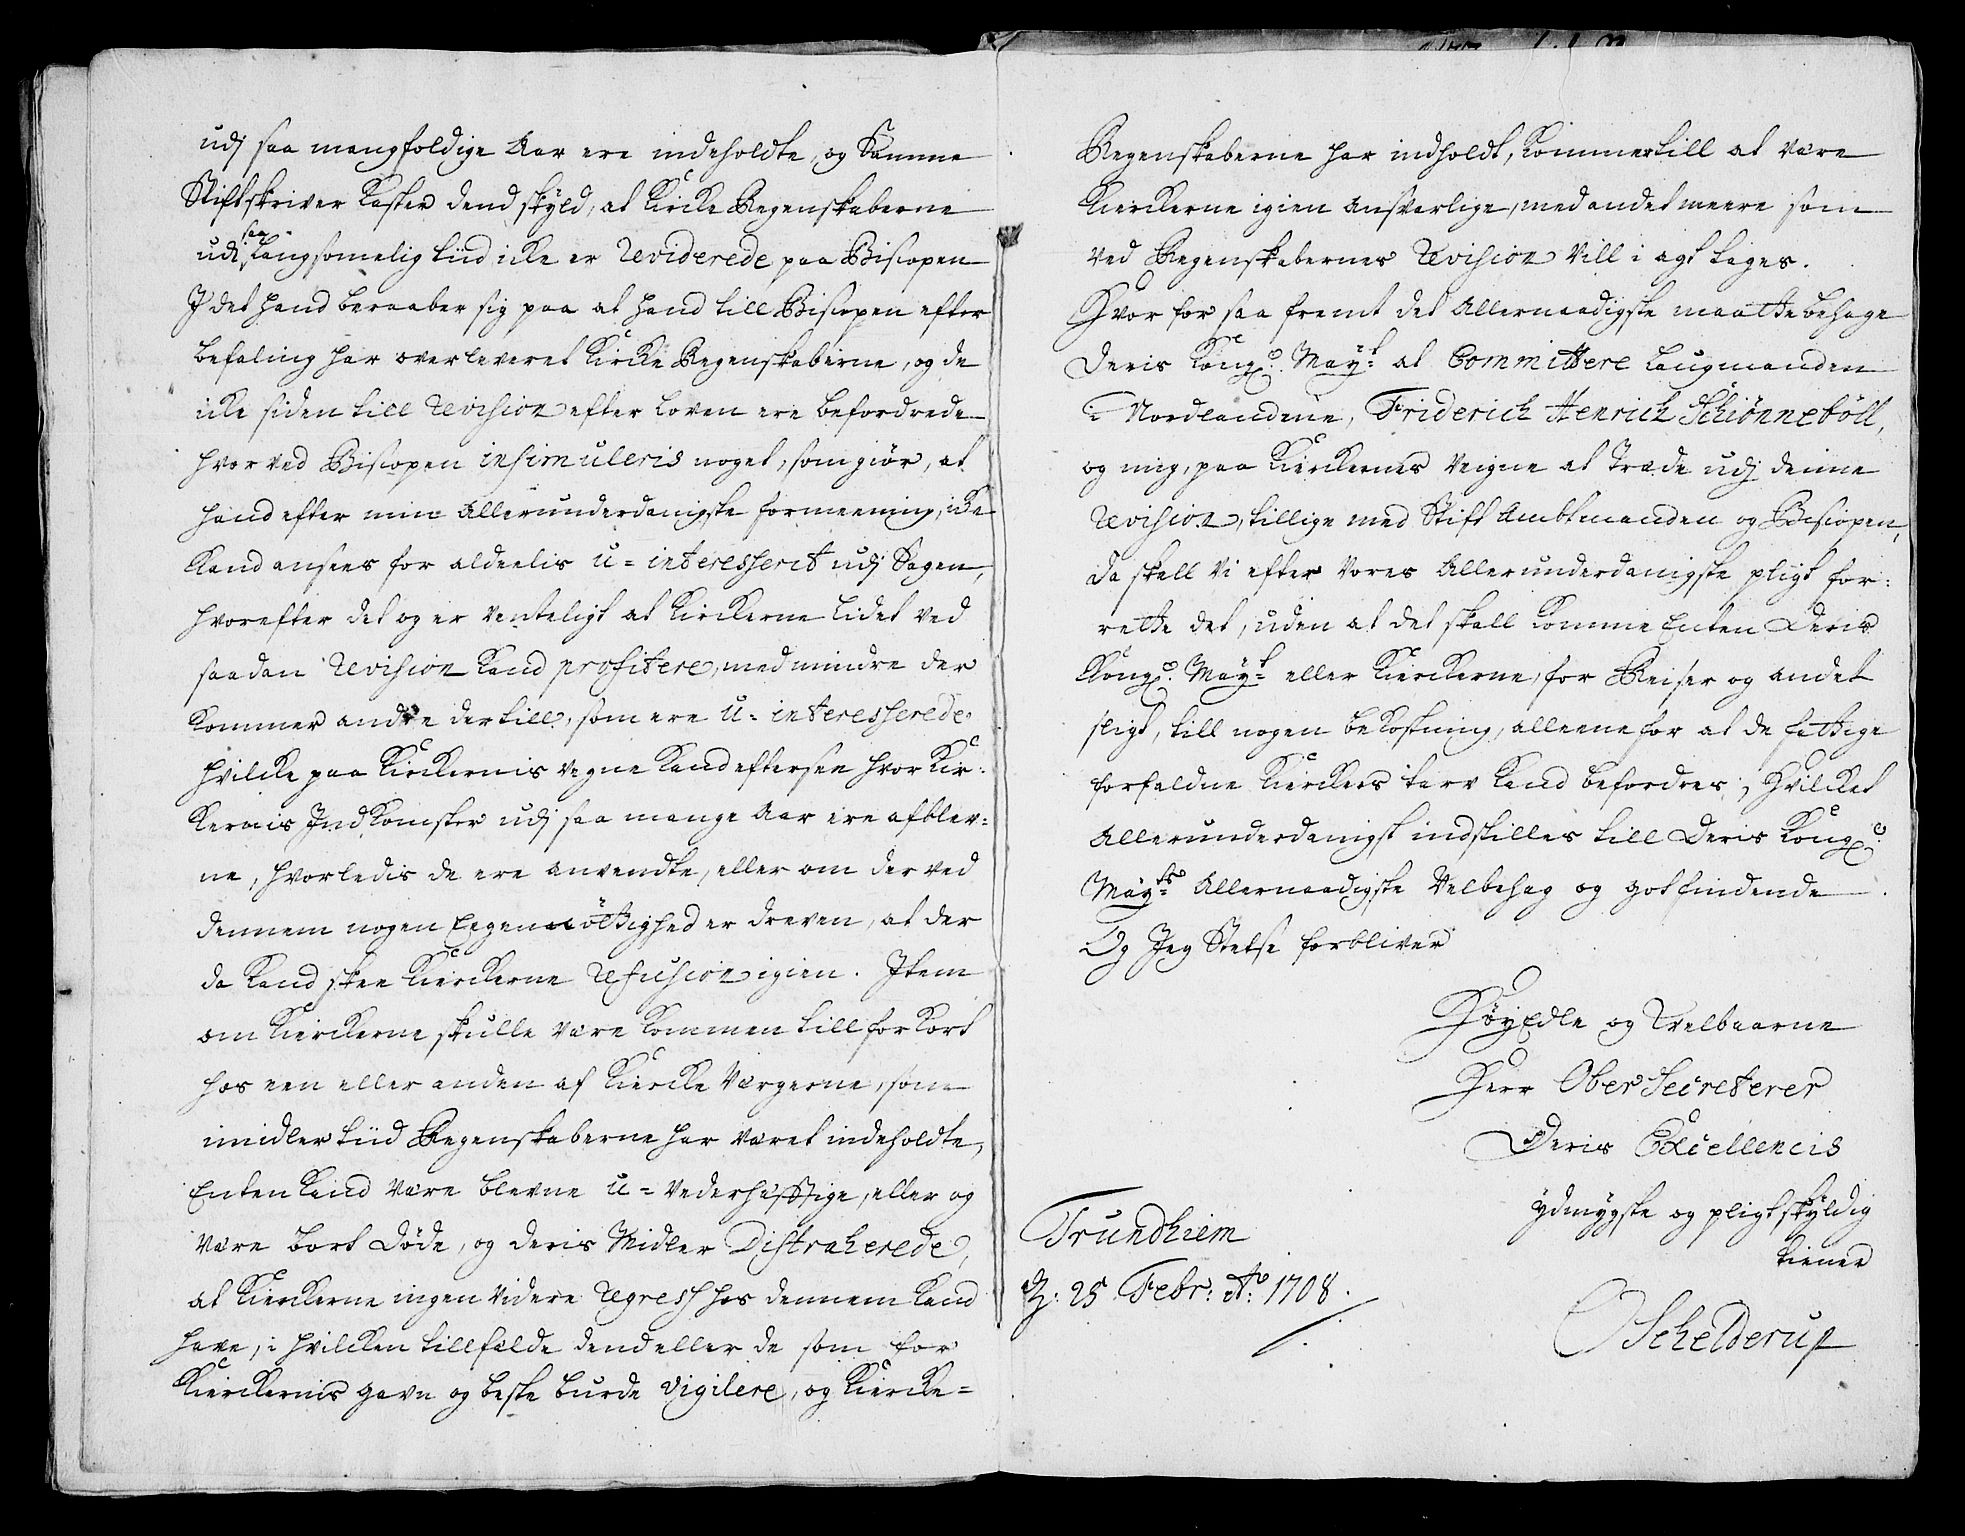 udj saa mangfoldige Aar ere indeholdte, og Samme
Stiftskriver kaster dend skyld, at Kircke Regenskaberne
udi saa langsomelig tiid icke er Reviderede paa Biscopen
I det hand beraaber sig paa at hand till Biscopen efter
befaling har overleveret Kircke Regenskaberne, og de
icke siden till Revision efter loven ere befordrede
hvor ved Biscopen insimuleris noget, som giør, at
hand efter min Allerunderdanigste formeening, icke
kand ansees for aldeelis u-interesserit udj Sagen,
hvorefter det og er venteligt at Kirckerne lidet ved
saadan Revision kand profitere, med mindre der
kommer andre der till, som ere u-interesserede
hvilcke paa Kirckernis vegne kand eftersee hvor Kir-
kernis Indkomster udj saa mange Aar ere afblev-
ne, hvorledis de ere anvendte, eller om der ved
dennem nogen Eegennöttighed er dreven, at der
da kand skee Kierckerne Refusion igien. Item
om Kierckerne skulle være kommen till forkort
hos een eller anden af Kiercke Værgerne, som
imidler tiid Regenskaberne har været indeholdte,
Enten kand være blevne u-vederhefftige, eller og
være bort døde, og deris Midler Distraherede,
at Kierckerne ingen videre Regress hos dennem kand
have, i hvilcken tillfælde dend eller de som for
Kierckernis gavn og beste burde vigilere, og Kiercke-
Regenskaberne har indholdt, kommer till at være
Kierckerne igien ansvarlige, med andet meere som
ved Regenskabernes Revision vill i agt tages.
Hvor for saa fremt det Allernaadigste maatte behage
Deris Kongl. Mayt at Committere Laugmanden
i Nordlandene, Friderich Henrich Schiønneböll,
og mig, paa Kierckernes veigne at Træde udj denne
Revision, tillige med Stift Ambtmanden og Biscopen,
da skall vi efter vores Allerunderdanigste pligt for-
rette det, uden at det skall komme Enten Deris
Kongl. Mayt eller Kierckerne, for Reiser og andet
sligt, till nogen bekostning, alleene for at de fattige
forfaldne Kierckers tarv kand befordres, Hvilcket
Allerunderdanigst indstilles till Deris Kongl.
Mayts Allernaadigste Velbehag og gotfindende.
Og Jeg Stetse forbliver
HöyEdle og Velbaarne
Herr Ober Secreterer
Deris Excellencis
ydmygste og pligtskyldig
tiener
Trundhiem
d. 25 Febr: Ao: 1708.
Schelderup